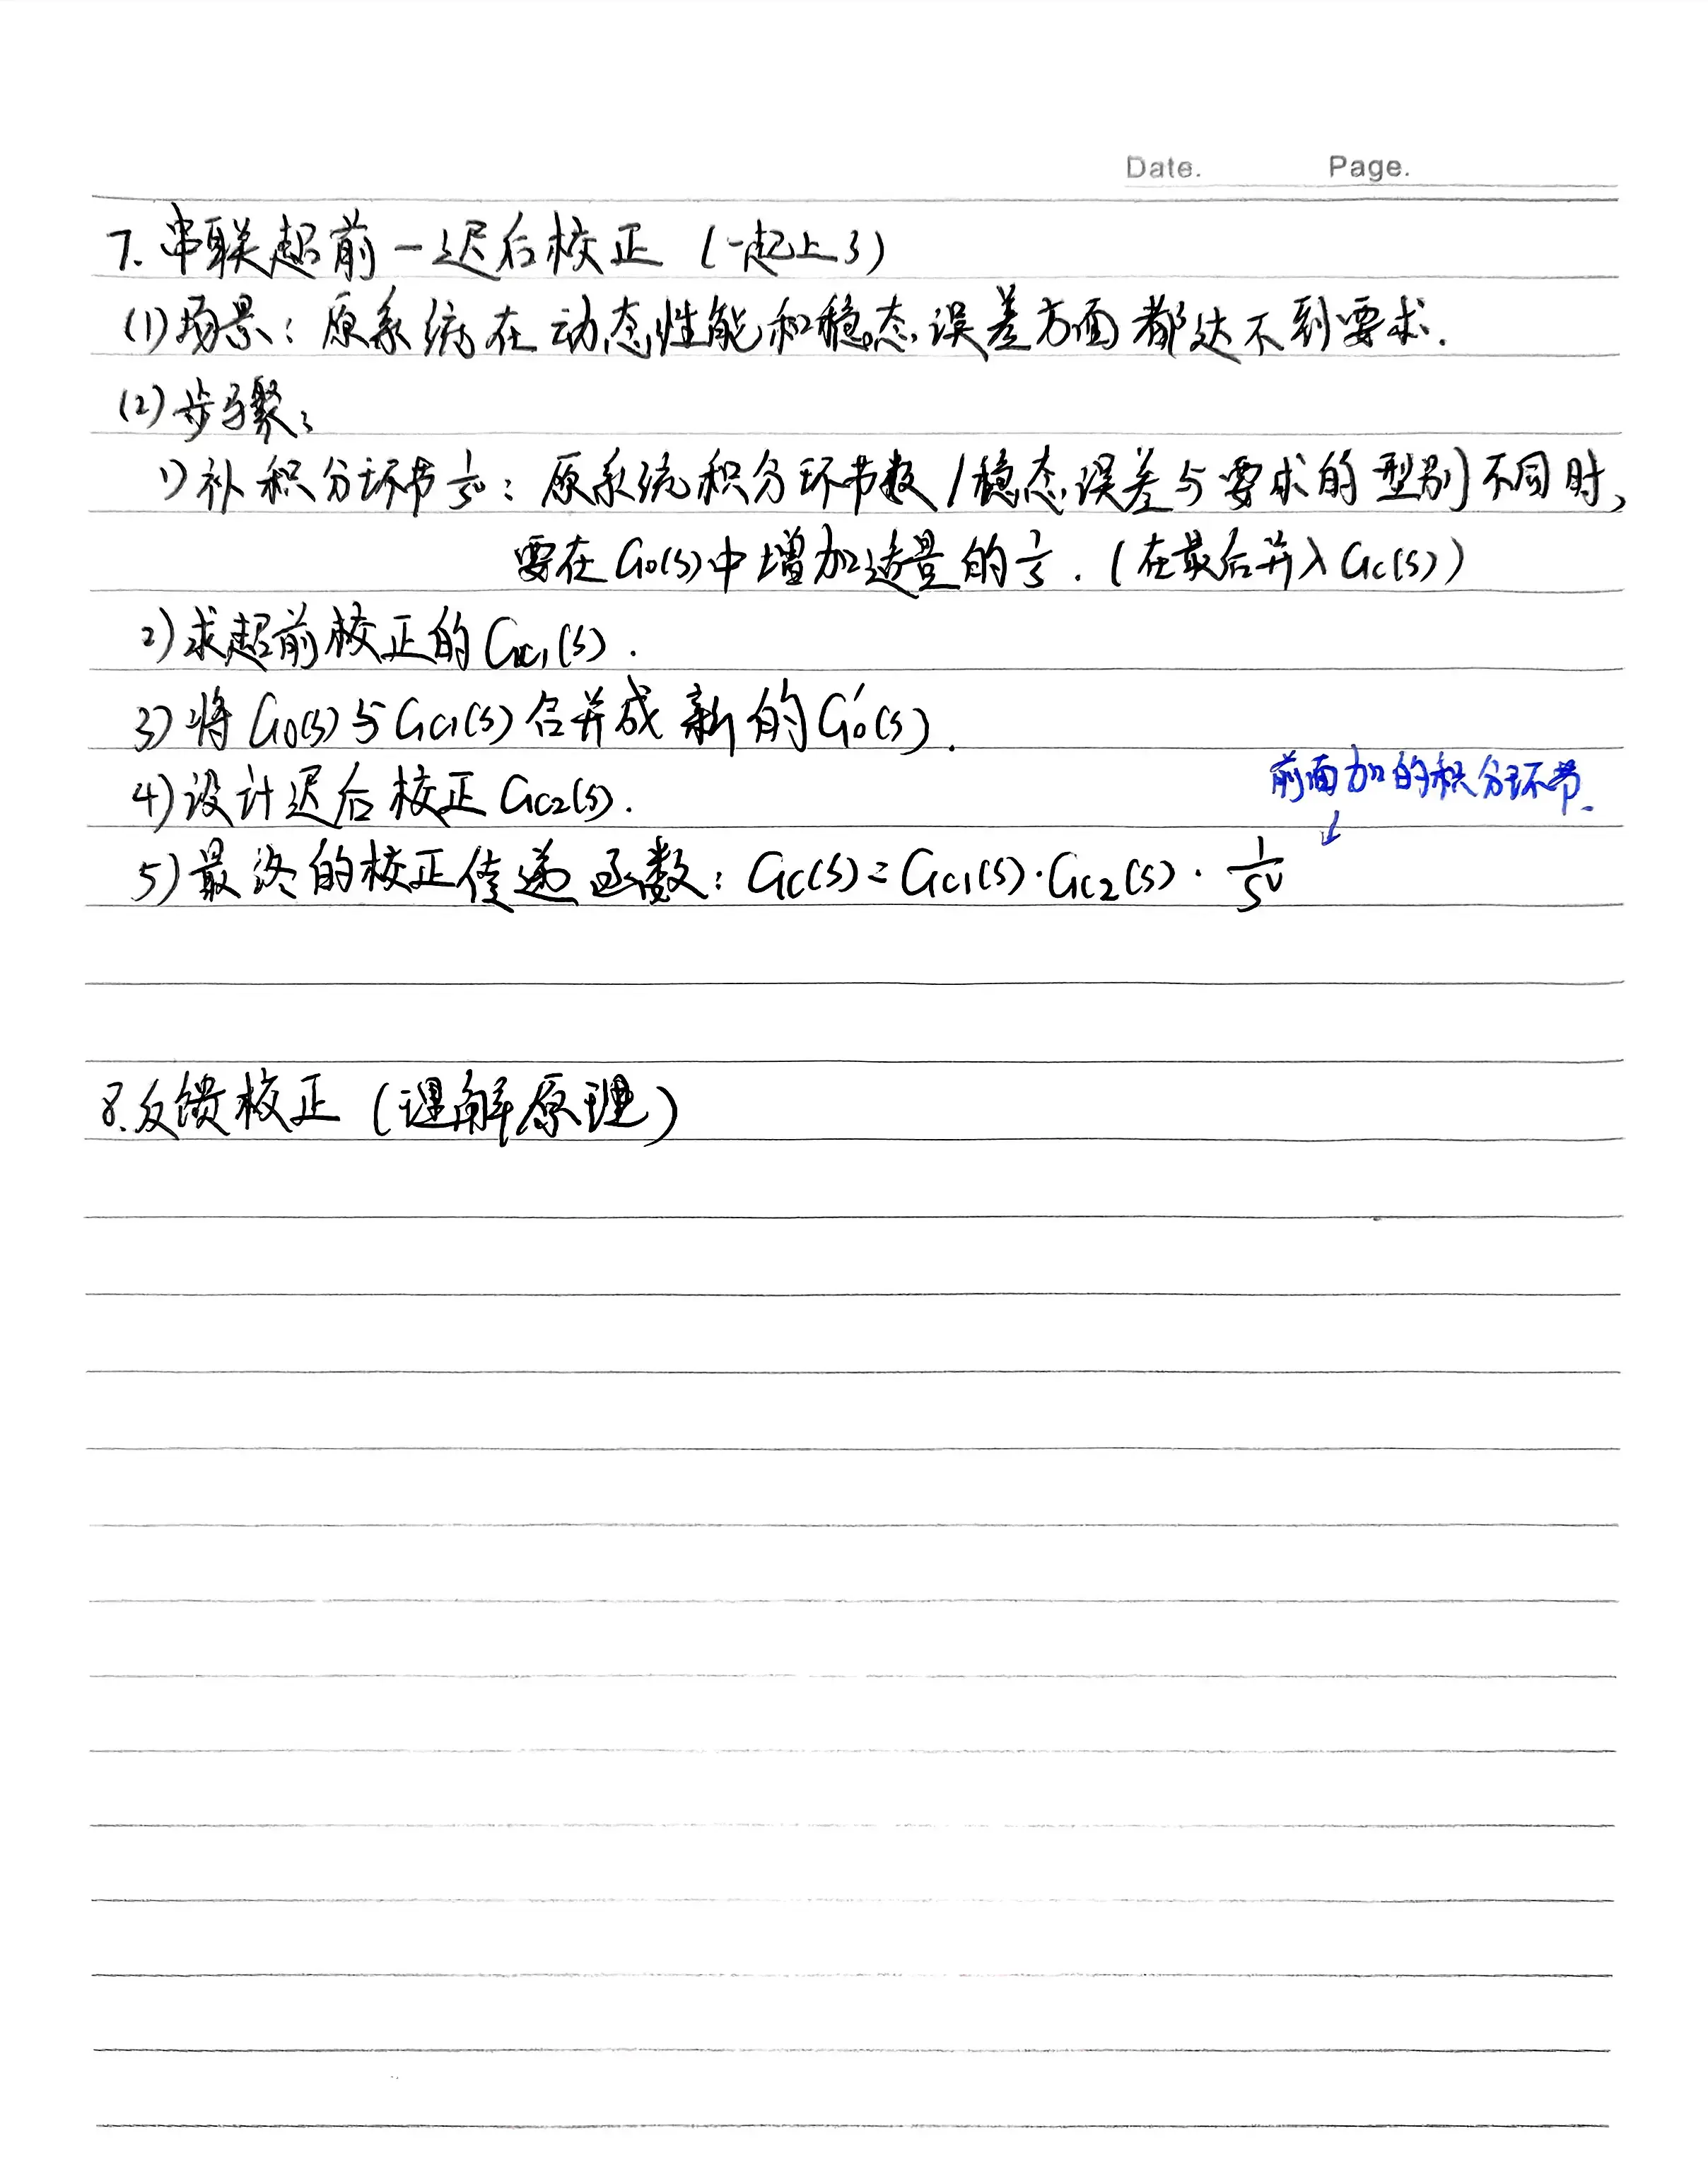 Date. Page.
7. 串联超前-迟后校正 (一起上了)
(1) 场景: 原系统在动态性能和稳态误差方面都达不到要求.
(2) 步骤:
1) 补积分环节 1/s^v: 原系统积分环节数/稳态误差与要求的型别不同时,
要在G₀(s)中增加适量的 1/s. (在最后并入Gc(s))
2) 求超前校正的Gc₁(s).
3) 将G₀(s)与Gc₁(s)合并成新的G₀'(s).
前面加的积分环节.
↓
4) 设计迟后校正Gc₂(s).
5) 最终的校正传递函数: Gc(s)=Gc₁(s)·Gc₂(s)· 1/s^v
8. 反馈校正 (理解原理)